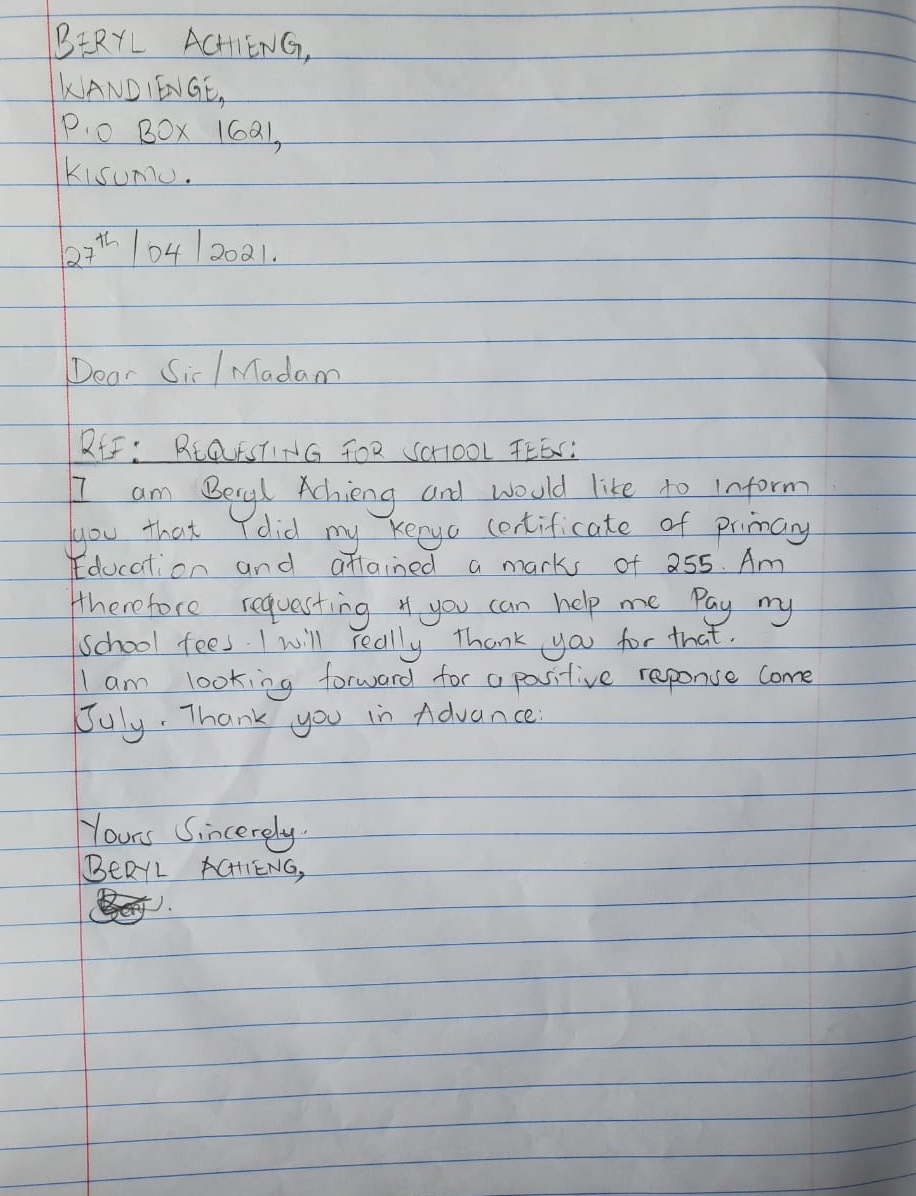 BERYL ACHIENG,
WANDIENGE,
P.O BOX 1621,
KISUMU.
27th/04/2021.
Dear Sir/Madam
REF: REQUESTING FOR SCHOOL FEES:
I am Beryl Achieng and would like to inform
you that I did my Kenya certificate of primary
Education and attained a marks of 255. Am
therefore requesting if you can help me Pay my
school fees. I will really Thank you for that.
I am looking forward for a positive reponse Come
July. Thank you in Advance:
Yours Sincerely.
BERYL ACHIENG,